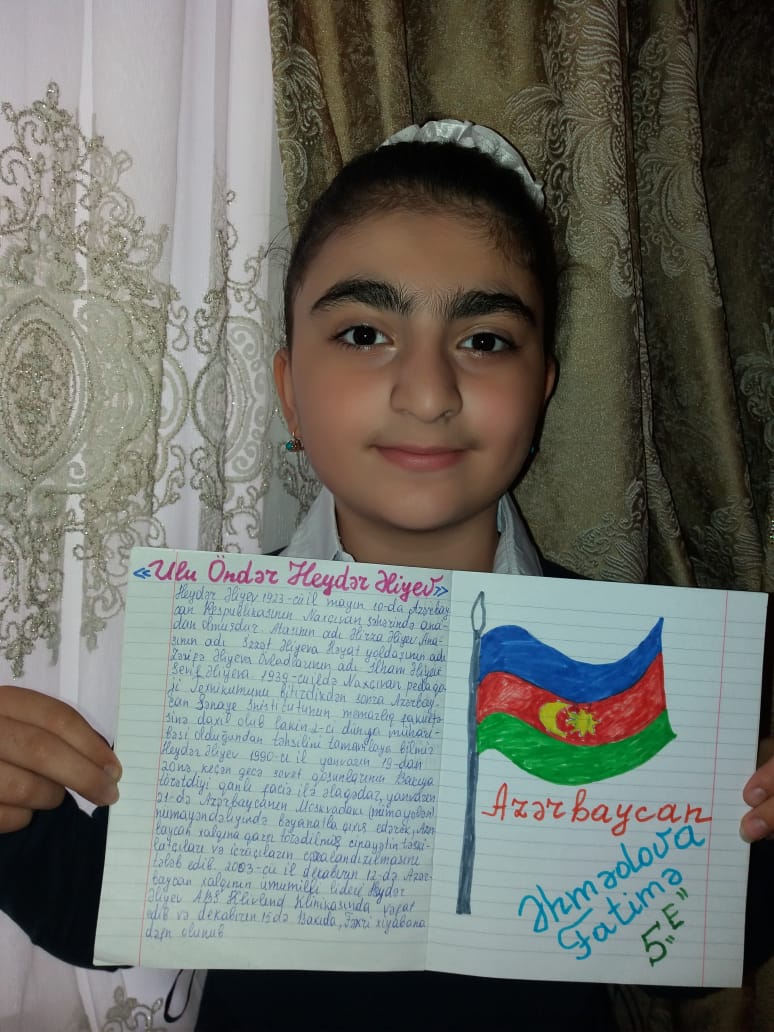 «Ulu Öndər Heydər Əliyev»
Heydər Əliyev 1923-cü il mayın 10-da Azərbay-
can Respublikasının Naxçıvan şəhərində ana-
dan olmuşdur. Atasının adı Mirzə Əliyev Ana-
sının adı İzzət Əliyeva Həyat yoldaşının adı
Zərifə Əliyeva Övladlarının adı İlham Əliyev
Sevil Əliyeva. 1939-cu ildə Naxçıvan pedaqo-
ji Texnikumunu bitirdikdən sonra Azərbay-
can Sənaye İnstitutunun memarlıq fakultə-
sinə daxil olub lakin 2-ci dünya mühari-
bəsi olduğundan təhsilini tamamlaya bilmir
Heydər Əliyev 1990-cı il yanvarın 19-dan
20nə, keçən gecə sovet qoşunlarının Bakıya
törətdiyi qanlı faciə ilə əlaqədar, yanvarın
21-də Azərbaycanın Moskvadakı
nümayəndəliyində bəyanatla çıxış edərək, Azər
baycan xalqına qarşı törədilmiş cinayətin təşki-
latçıları və icraçıların cəzalandırılmasını
tələb edib. 2003-cü il dekabrın 12-də Azər-
baycan xalqının ümumilli lideri Heydər
Əliyev ABŞ Klivlend Klinikasında vəfat
edib və dekabrın 15də Bakıda, Fəxri xiyabana
dəfn olunub
Azərbaycan
Əhmədova
Fatimə
5"E"